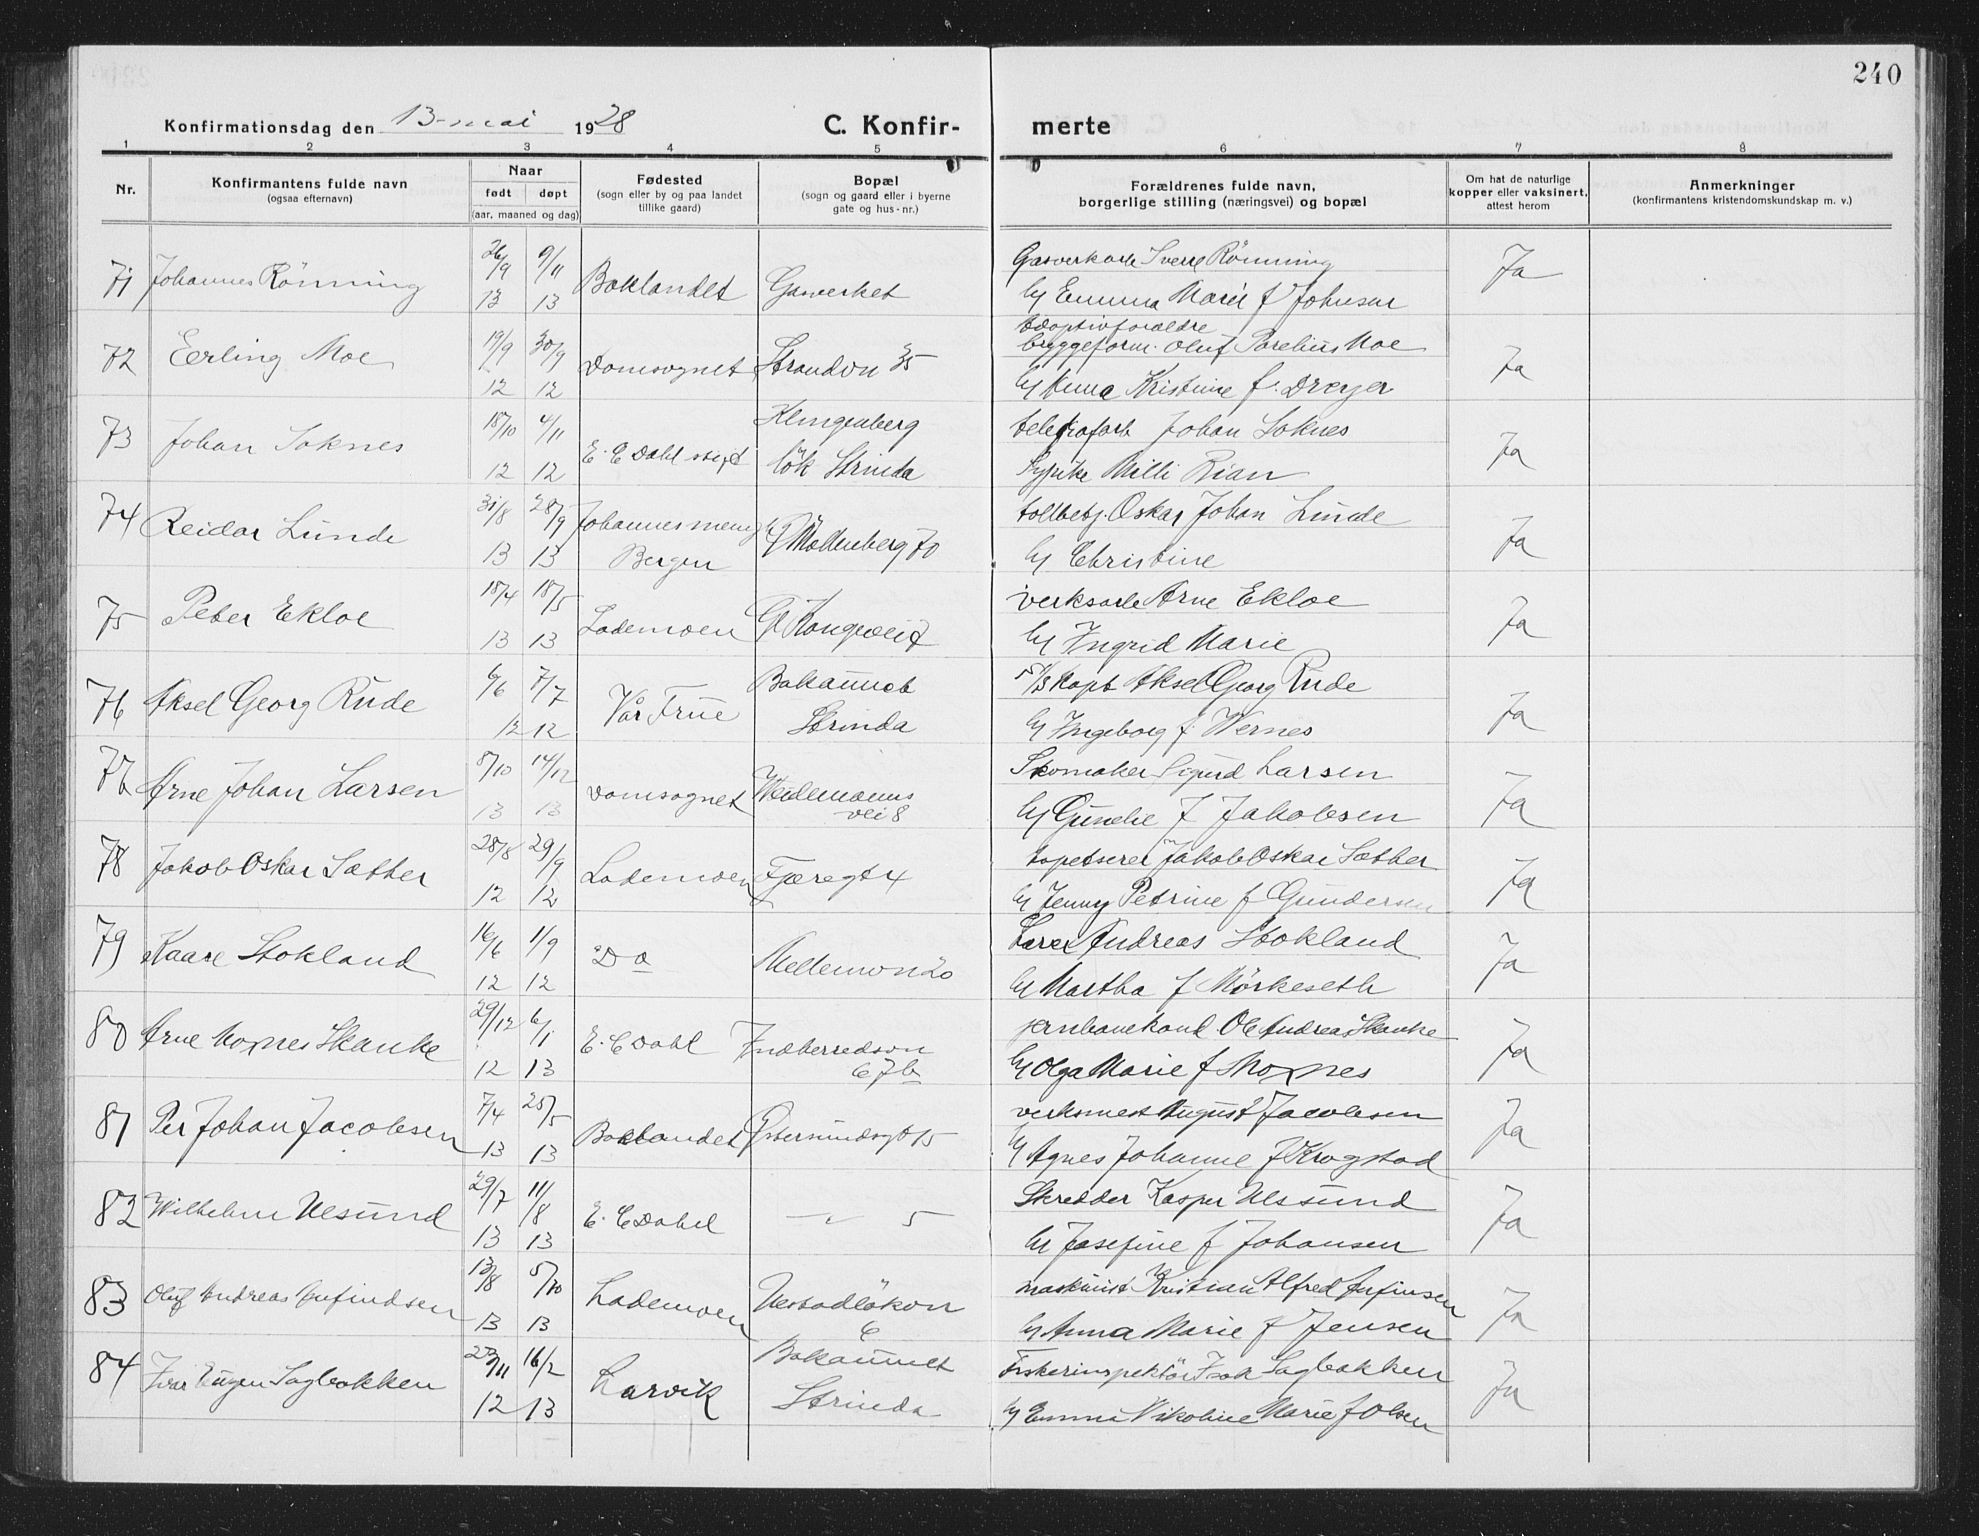 240
Konfirmationsdag den 13-mai 1928 C. Konfir- merte
1 2 3 4 5 6 7 8
Nr. Konfirmantens fulde navn (ogsaa efternavn) Naar født døpt (aar, maaned og dag) Fødested (sogn eller by og paa landet tillike gaard) Bopæl (sogn og gaard eller i byerne gate og hus-nr.) Forældrenes fulde navn, borgerlige stilling (næringsvei) og bopæl Om hat de naturlige kopper eller vaksinert, attest herom Anmerkninger (konfirmantens kristendomskundskap m. v.)
71 Johannes Rönning 26/9 13 9/11 13 Baklandet Gasverket Gasverkarb Sverre Rönning
Emma Marie f Johnsen Ja
72 Eerling Moe 19/9 12 30/9 12 Domsognet Strandvn 35 Adoptivforældre
byggeform. Oluf Parelius Moe
Anna Kristine f. Dreyer Ja
73 Johan Soknes 18/10 12 4/11 12 E. C Dahl stift Klingenberg
lök Strinda telegrafarb Johan Soknes
Sypike Milli Rian Ja
74 Reidar Lunde 31/8 13 28/9 13 Johannesmenig
Bergen Möllenberg 70 tollbetj. Oskar Johan Lunde
Christine Ja
75 Peter Ekloe 18/4 13 18/5 13 Lademoen Gl Kongevei 7 verksarb Arne Ekloe
Ingrid Marie Ja
76 Aksel Georg Rude 6/6 12 7/7 12 Vår Frue Bakaunet
Strinda kapt Aksel Georg Rude
Ingeborg f. Wernes Ja
77 Arne Johan Larsen 8/10 13 14/12 13 Domsognet Weidemanns
vei 8 Skomaker Sigurd Larsen
f Jakobsen Ja
78 Jakob Oskar Sæther 28/8 12 29/9 12 Lademoen Fjæregt 4 tapetserer Jakob Oskar Sæther
Jenny Petrine f Gundersen Ja
79 Kaare Stokland 16/6 12 1/9 12 Do Mellemvn 20 Lærer Andreas Stokland
Martha f Mörkeseth Ja
80 Arne Moxnes Skanke 29/12 12 6/1 13 E. C Dahl Indherredsvn
67b jernbanekond Ole Andreas Skanke
Olga Marie f Moxnes Ja
81 Per Johan Jacobsen 7/4 13 25/5 13 Baklandet Østersundsgt 15 verksmest August Jacobsen
Agnes Johanne f Krogstad Ja
82 Wilhelm Ulsund 29/7 13 11/8 13 E. C Dahl — " — 5 Skredder Kasper Ulssund
Josefine f Johansen Ja
83 Oluf Andreas Anfindsen 13/8 13 5/10 13 Lademoen Ulstadlökvn
6 maskinist Kristian Alfred Anfinsen
Anna Marie f Jensen Ja
84 Ivar Eugen Sagbakken 23/11 12 16/2 13 Larvik Bakaunet
Strinda Fiskerinspektör Isak Sagbakken
Emma Nikoline Marie f Olsen Ja